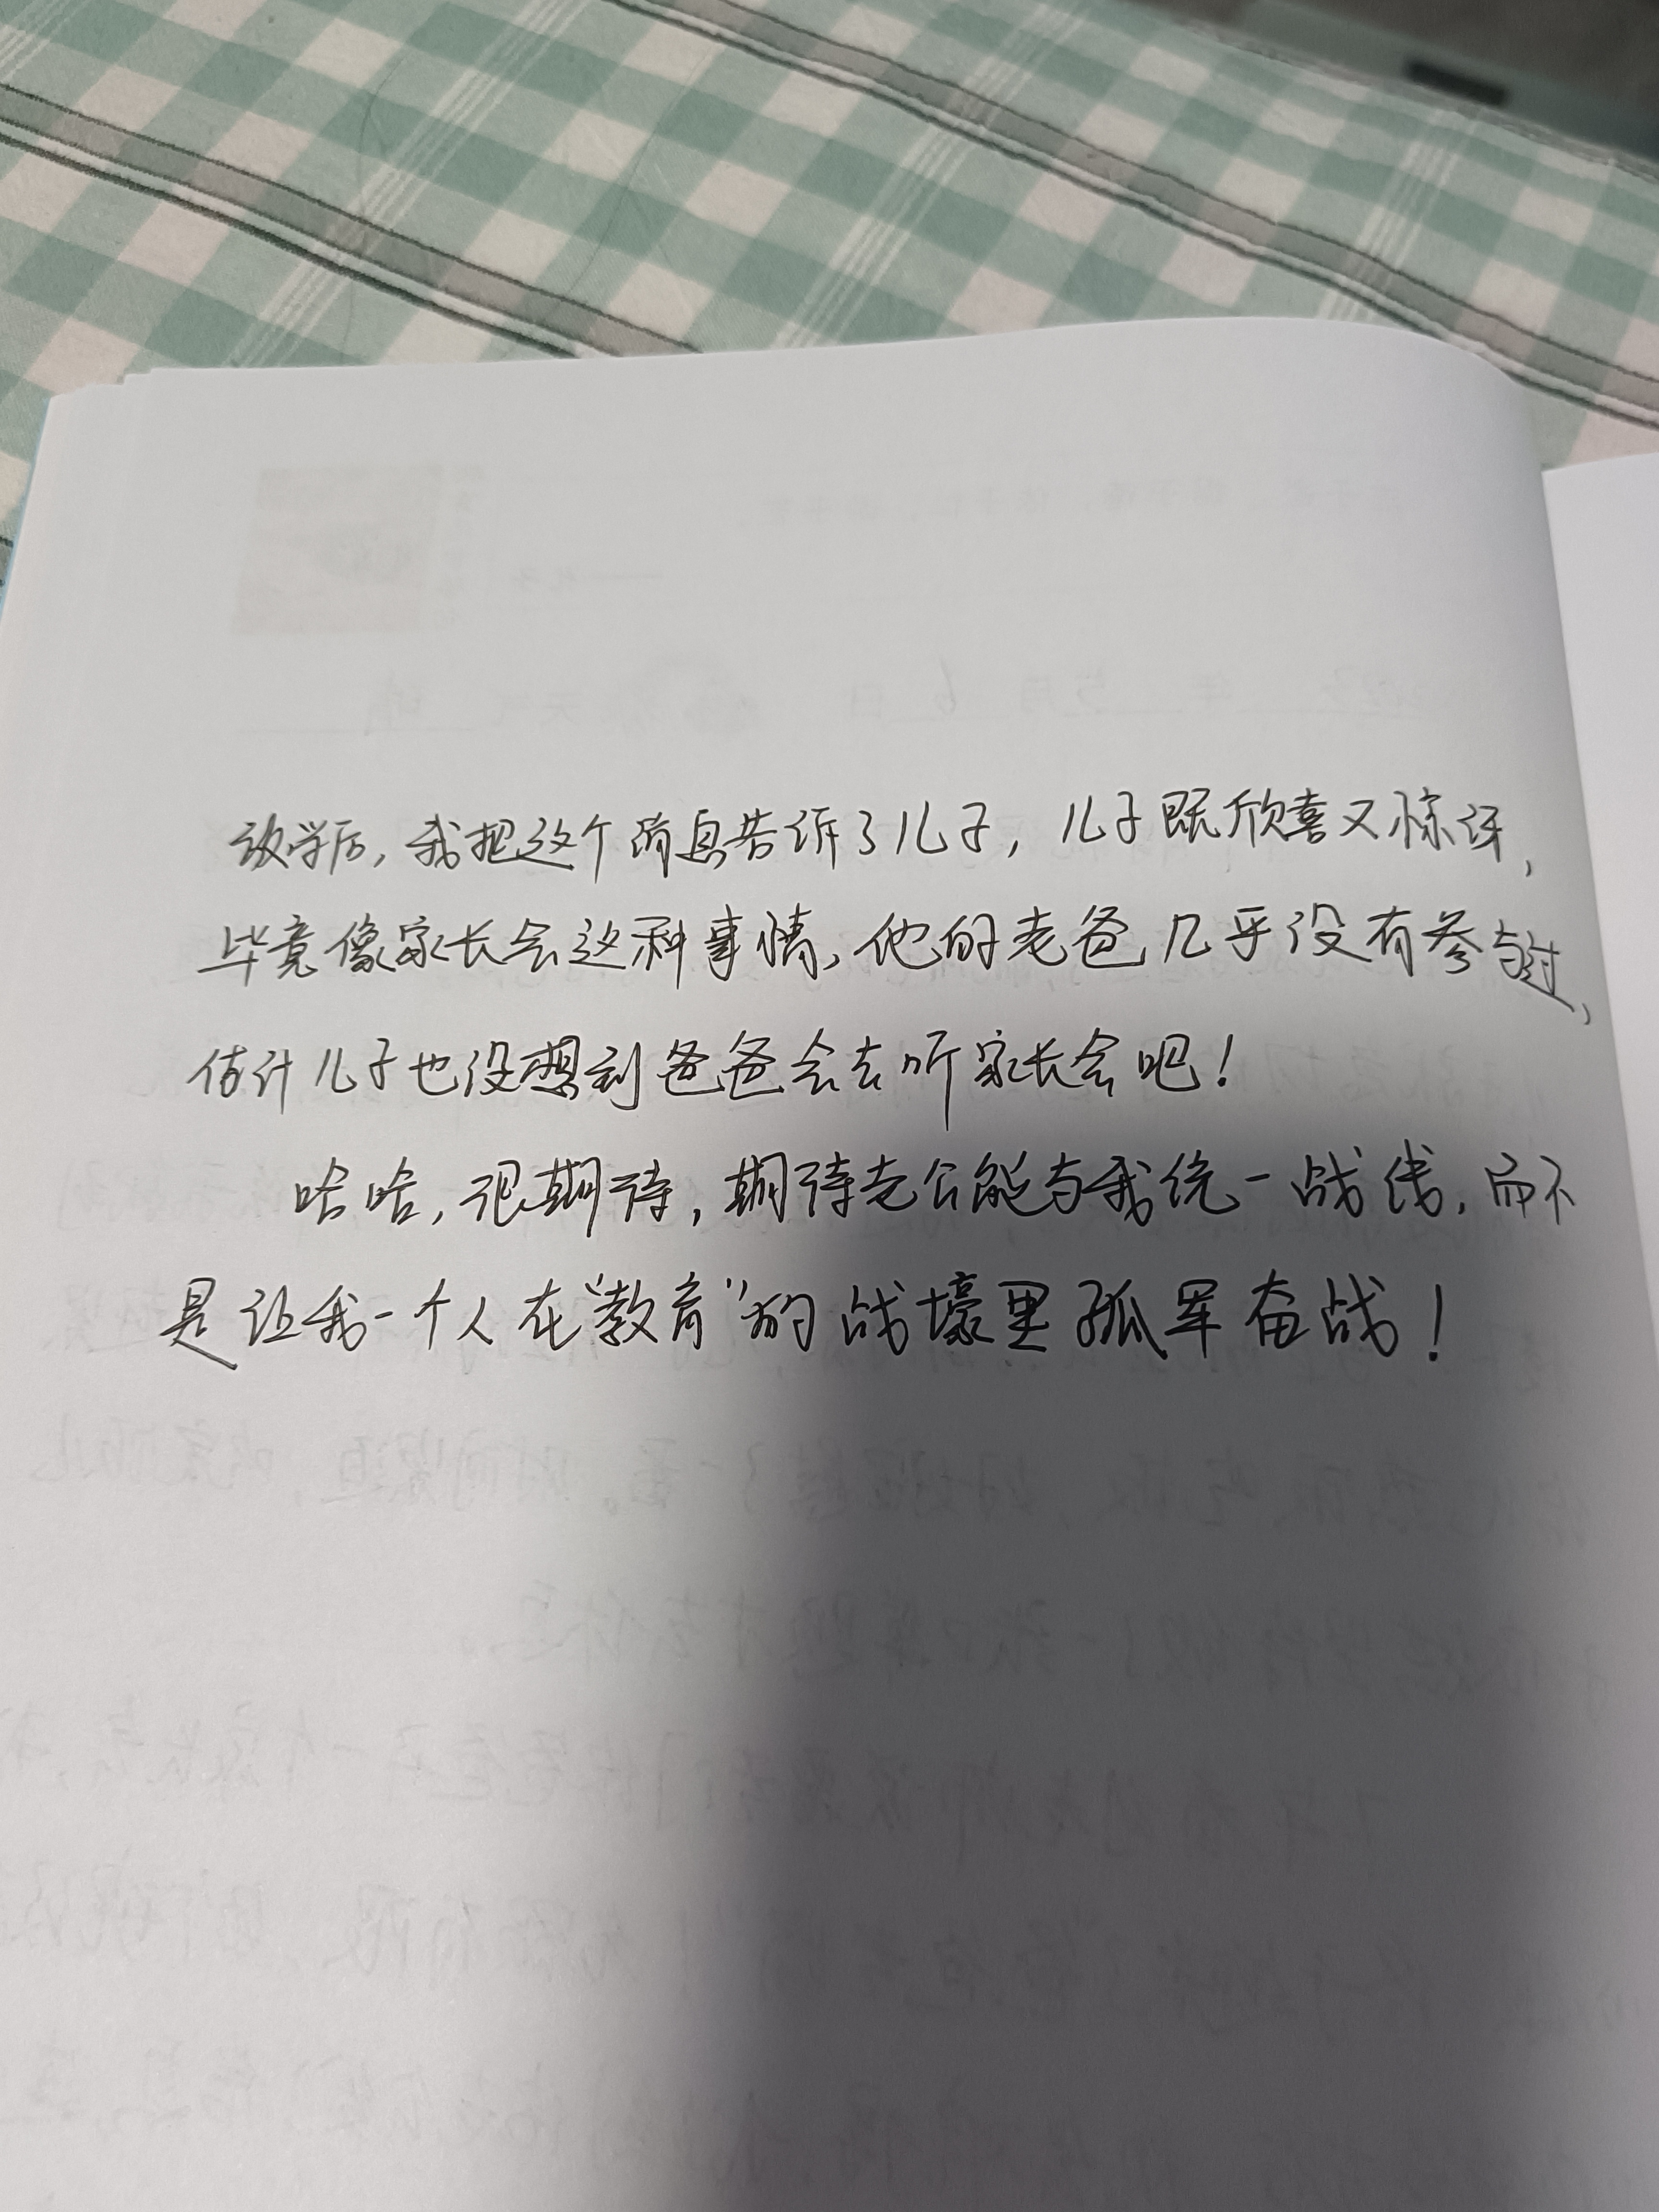 放学后，我把这个消息告诉了儿子，儿子既欣喜又惊讶，
毕竟像家长会这种事情，他的老爸几乎没有参与过，
估计儿子也没想到爸爸会去听家长会吧！
哈哈，很期待，期待老公能与我统一战线，而不
是让我一个人在“教育”的战壕里孤军奋战！